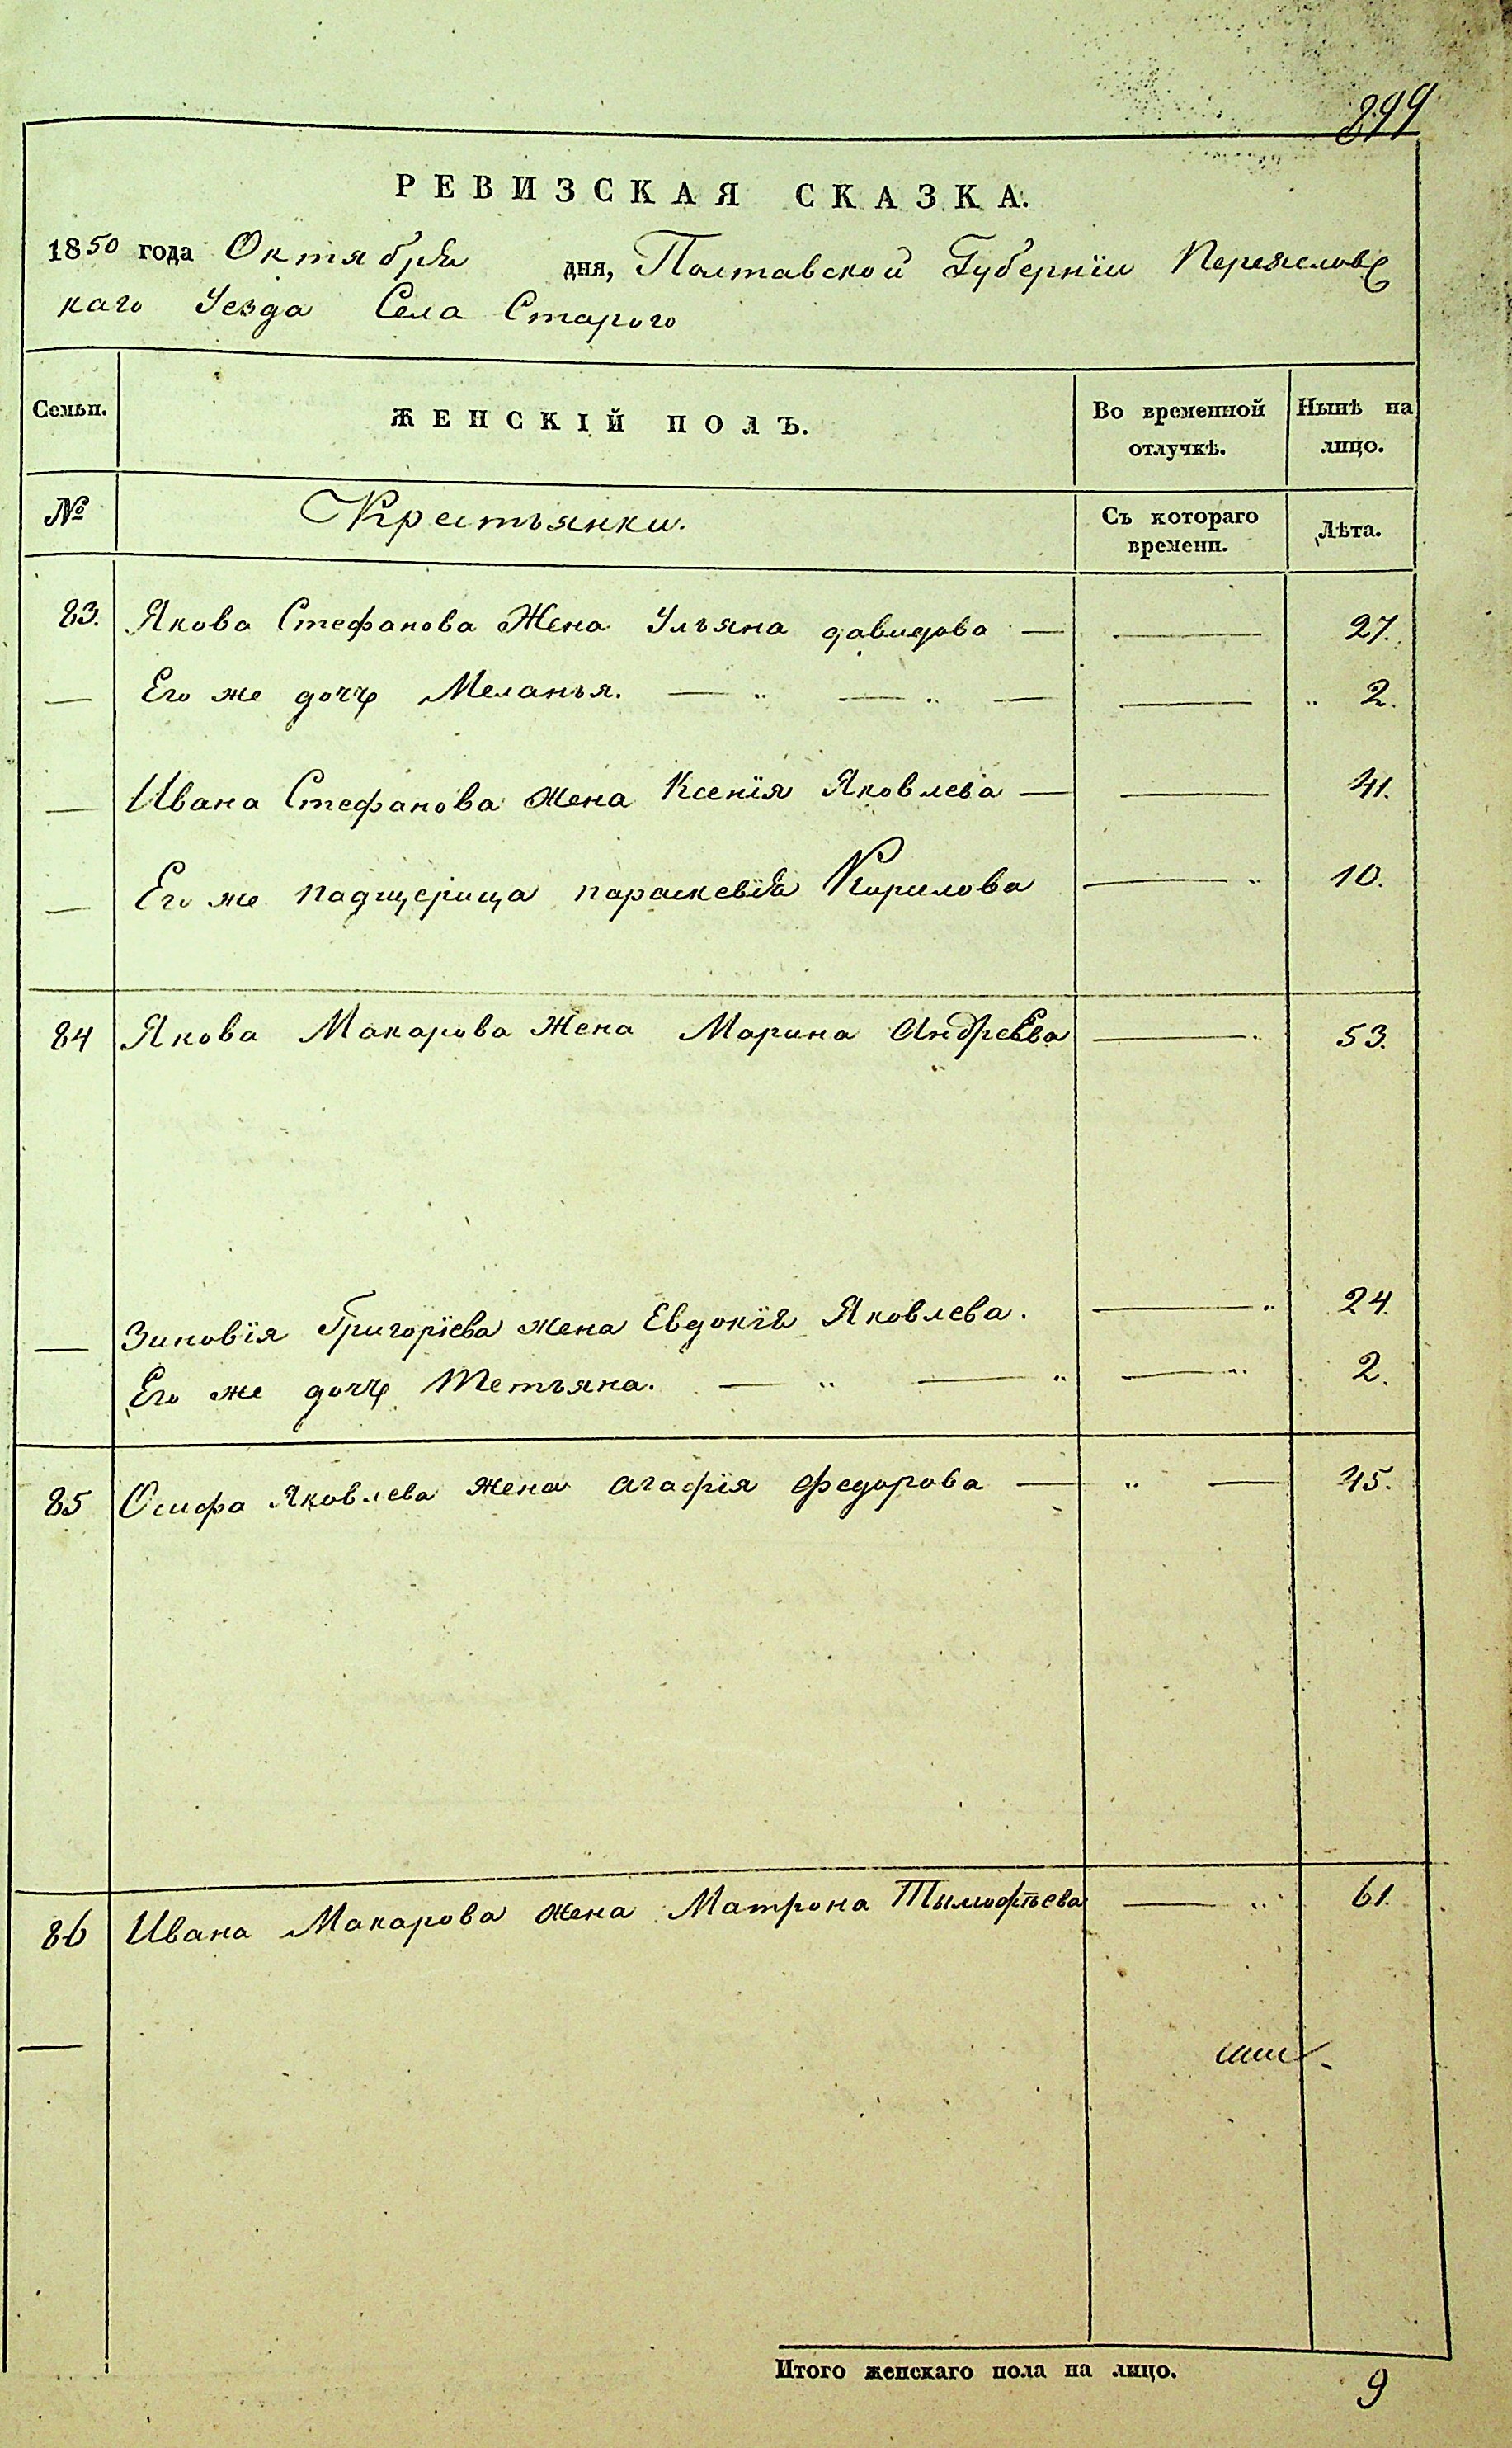 899
РЕВИЗСКАЯ СКАЗКА.
1850 года Октября дня, Полтавской Губернїи Переяславс
каго Уезда Села Старого
Семьи. ЖЕНСКІЙ ПОЛЪ. Во временной отлучкѣ. Нынѣ на лицо.
№ Крестьянки. Съ котораго времени. Лѣта.
83. Якова Стефанова Жена Ульяна давидова — — 27.
— Его же дочь Меланья. — „ — „ — — „ 2.
— Ивана Стефанова жена Ксенїя Яковлева — — 41.
— Его же падщерица параскевїя Кирилова — „ 10.
84 Якова Макарова Жена Марина Андреева — 53.
— Зиновїя Григорїева жена Евдокїя Яковлева. — „ 24.
Его же дочь Тетьяна. — „ — „ — „ 2.
85 Осифа Яковлева жена агафїя федорова — „ — 45.
86 Ивана Макарова жена Матрона Тымофѣева — „ 61.
—
Итого женскаго пола на лицо. 9